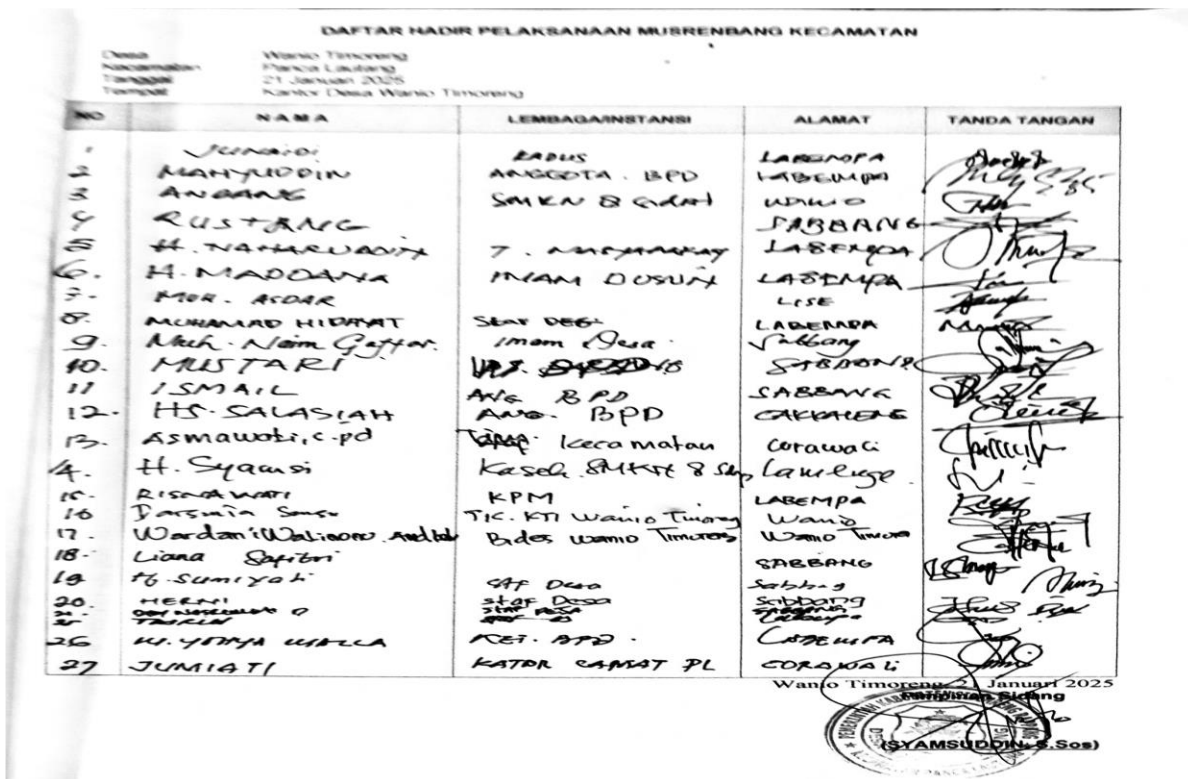 DAFTAR HADIR PELAKSANAAN MUSRENBANG KECAMATAN
Desa Wanio Timoreng
Kecamatan Panca Lautang
Tanggal 21 Januari 2025
Tempat Kantor Desa Wanio Timoreng
NO NAMA LEMBAGA/INSTANSI ALAMAT TANDA TANGAN
1 JUNAIDI KADUS LABEMPA
2 MAHYUDDIN ANGGOTA. BPD LABEMPA
3 ANBANG SMKN 8 WANIO
4 RUSTANG SABBANG
5 H. NAHARUDDIN T. MASYARAKAT LABEMPA
6. H. MADDANA IMAM DUSUN LABEMPA
7. MUH. ASDAR LISE
8. MUHAMAD HIDAYAT STAF DESA LABEMPA
9. Muh. Naim Gaffar. Imam Desa. Sabbang
10. MUSTARI SABBANG
11 ISMAIL ANG BPD SABBANG
12. HS. SALASIAH ANG. BPD CAKKALENG
13. Asmawati, S.pd Kecamatan Corawali
14. H. Syamsi Kasek. SMKN 8
15. RISNAWATI KPM LABEMPA
16 Darsmia TK. KTI Wanio Timoreng Wanio
17. Wardani Bides Wanio Timoreng Wanio Timore
18. Liana Safitri SABBANG
19 Hj. Sumiyati Staf Desa Sabbang
20. HERNI staf Desa Sabbang
STAF DESA SABBANG
26 M. YAHYA KET. BPD. LABEMPA
27 JUMIATI KATOR CAMAT PL CORAWALI
Wanio Timoreng, 21 Januari 2025
Pimpinan Sidang
(SYAMSUDDIN, S.Sos)